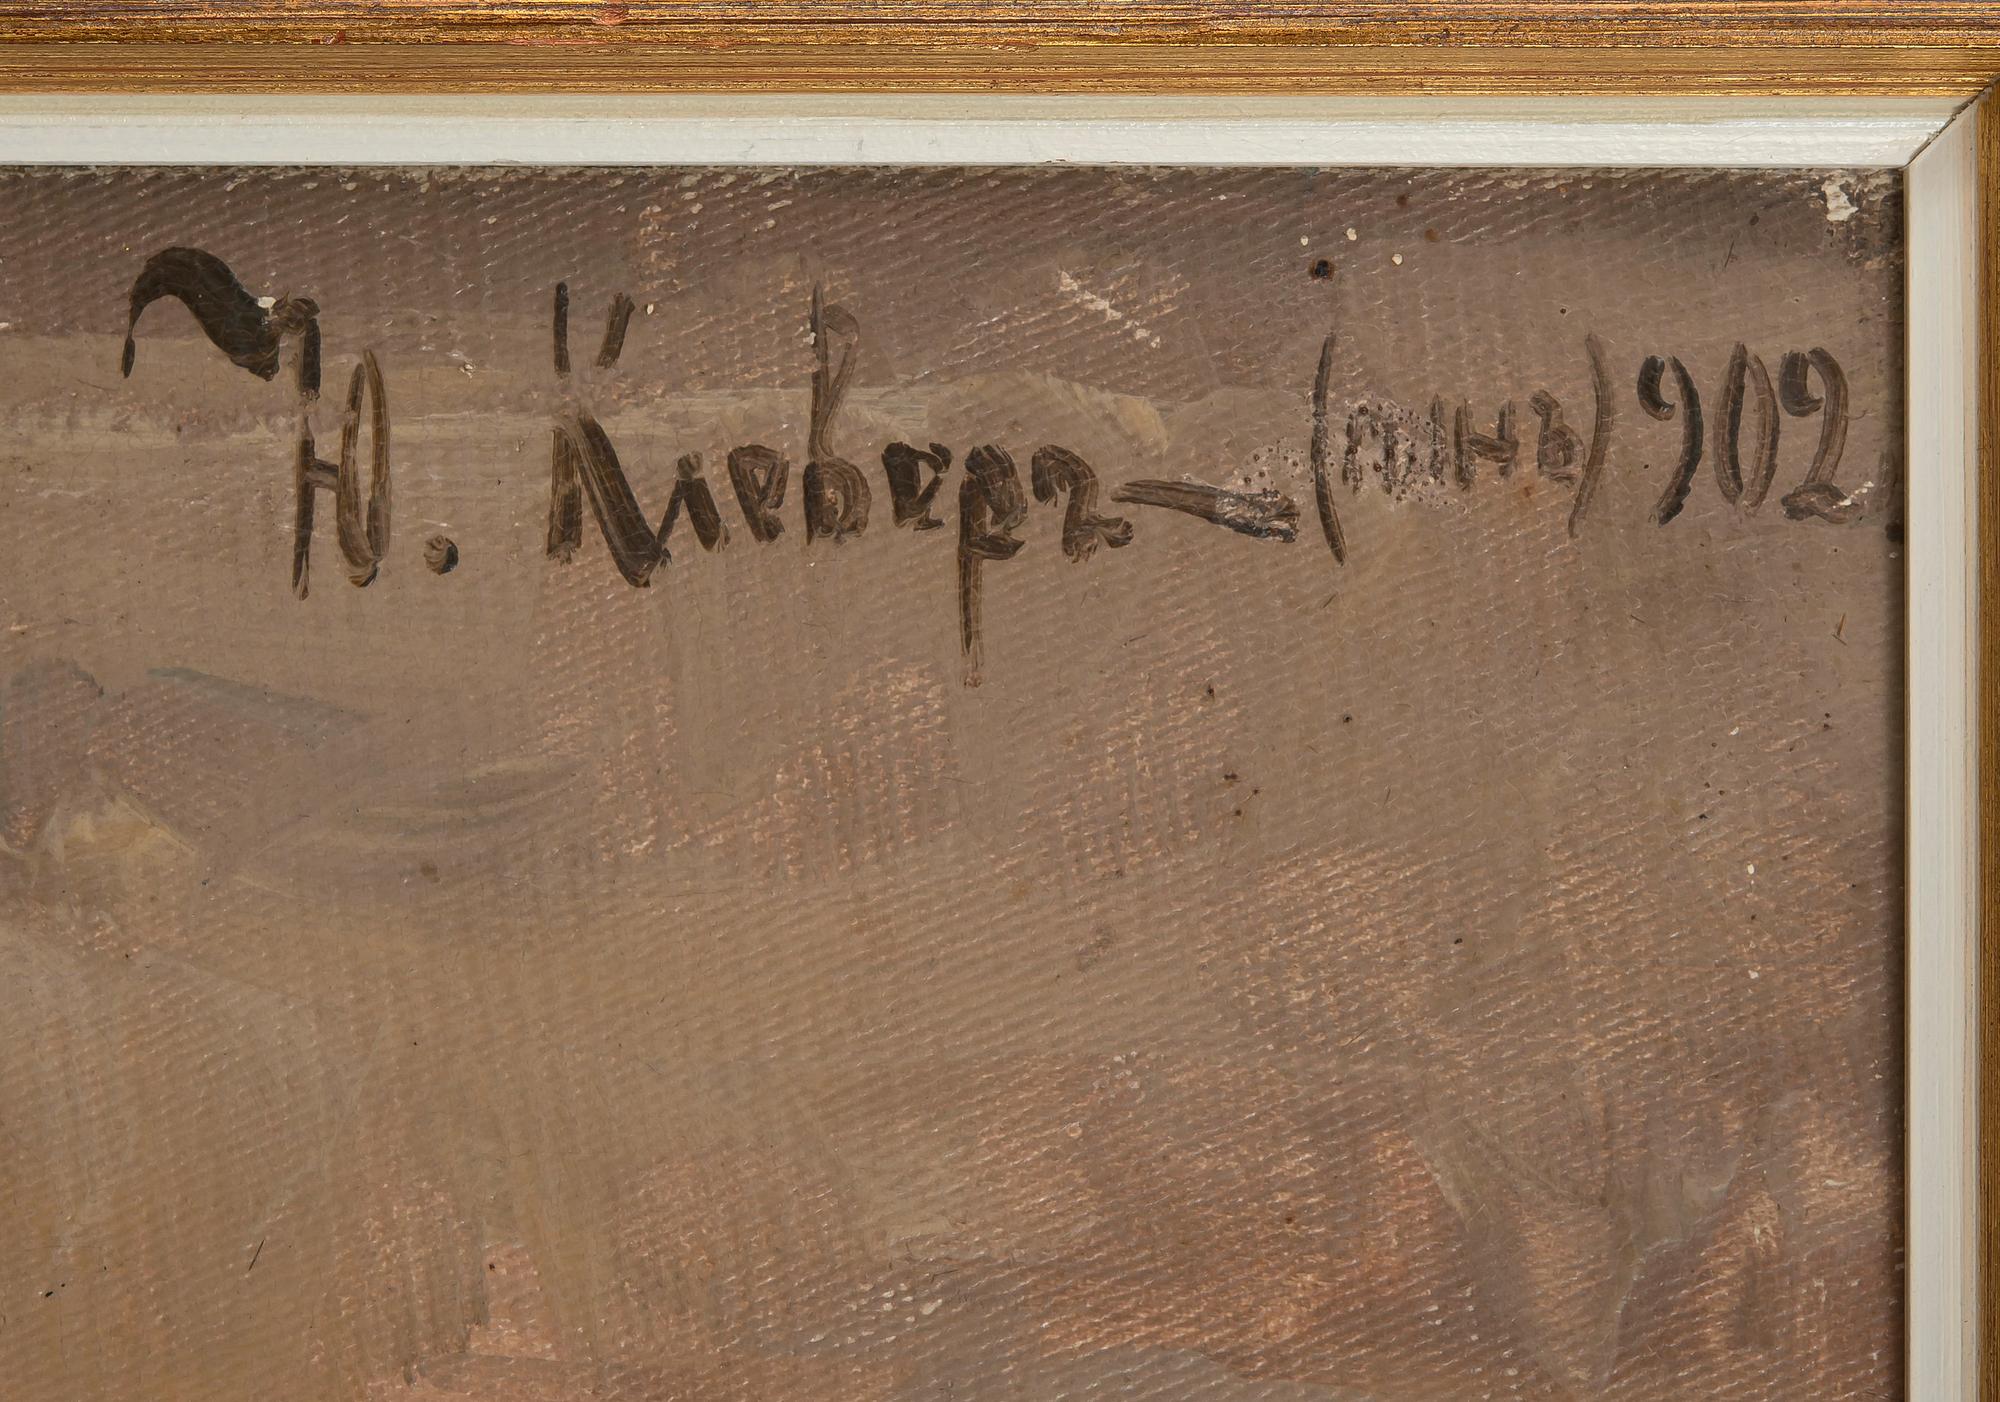 Ю. Клеверъ (сынъ) 902